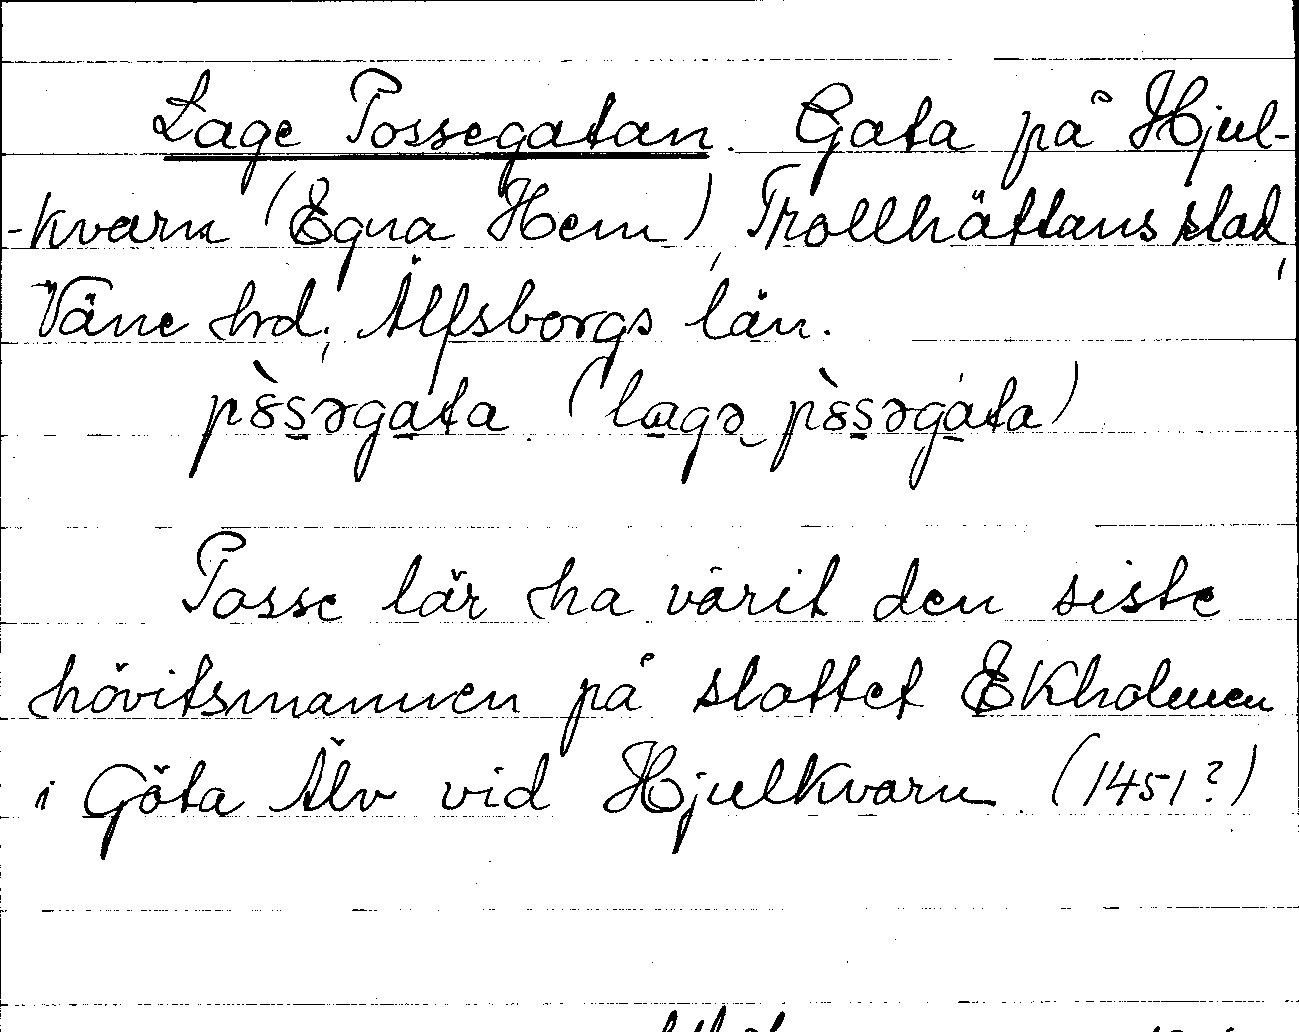 Lage Possegatan. Gata på Hjul-
-kvarn (Egna Hem), Trollhättans stad,
Väne hrd, Älfsborgs län.
pòssəgata (lagə pòssəgata)
Posse lär ha varit den siste
hövitsmannen på slottet Ekholmen
i Göta Älv vid Hjulkvarn (1451?)